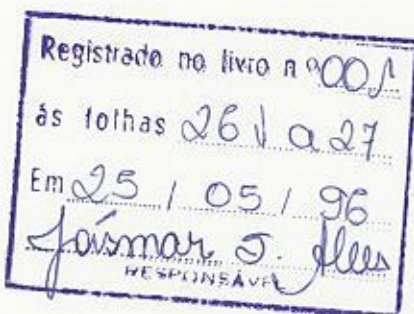 Registrado no livro nº 001
ás folhas 26v a 27
Em 25 / 05 / 96
Joismar S. Alves
RESPONSÁVEL